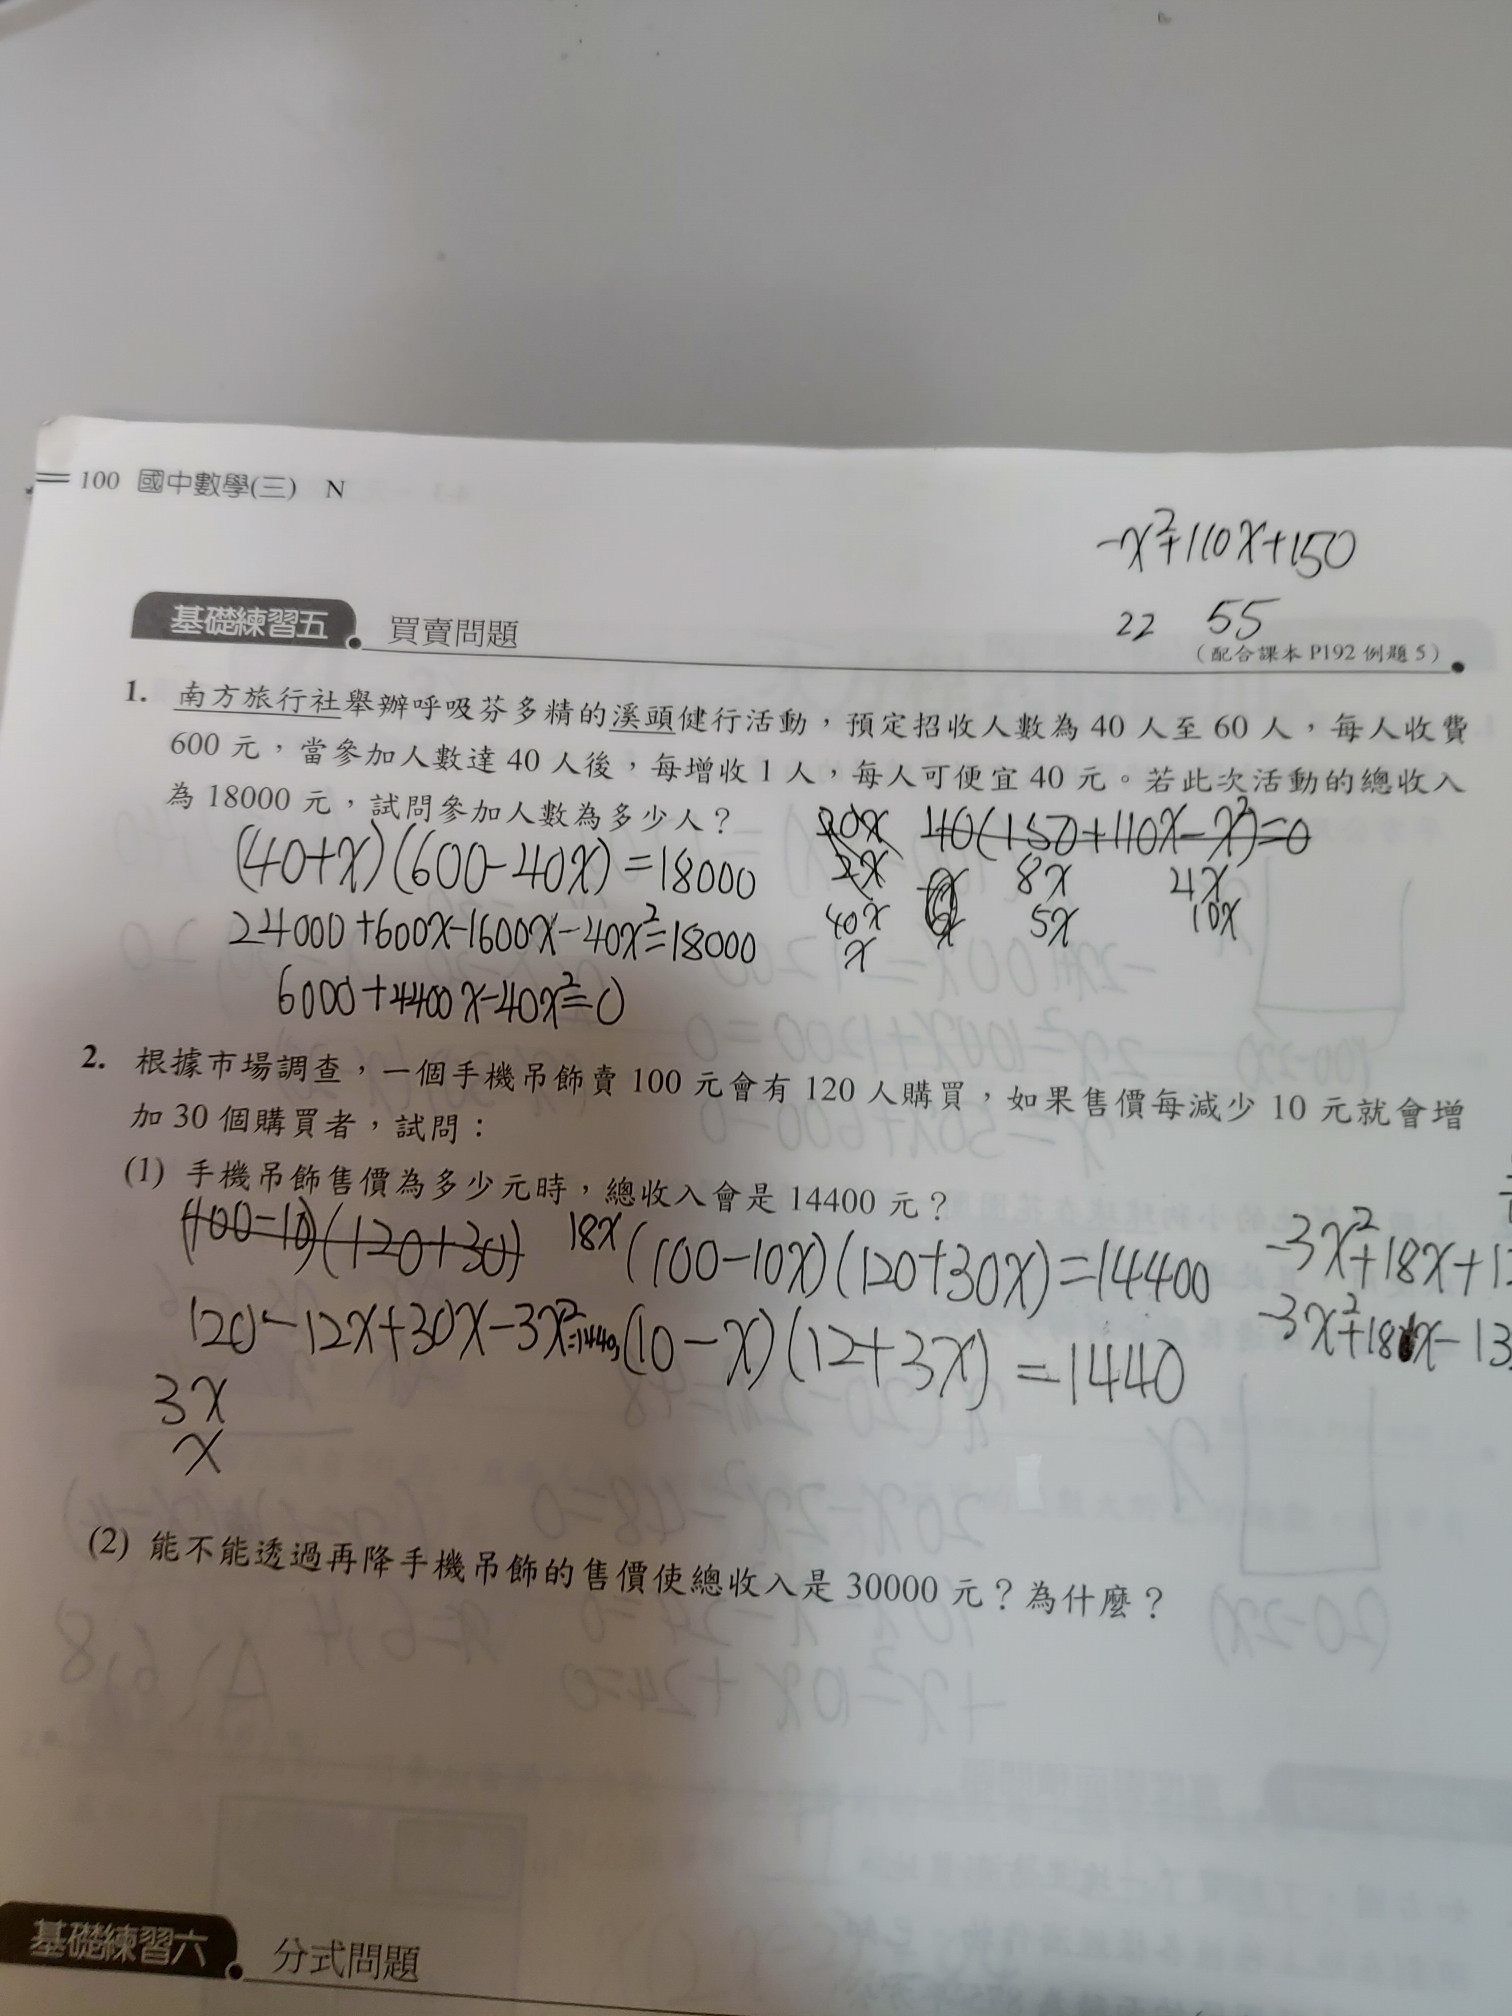 100 國中數學(三) N
-x²+110x+150
22 55
基礎練習五 買賣問題
(配合課本 P192 例題 5)
1. 南方旅行社舉辦呼吸芬多精的溪頭健行活動，預定招收人數為 40 人至 60 人，每人收費
600 元，當參加人數達 40 人後，每增收 1 人，每人可便宜 40 元。若此次活動的總收入
為 18000 元，試問參加人數為多少人？
40(150+110x-x²)=0
(40+x)(600-40x)=18000
2x 8x 4x
5x 10x
x
24000+600x-1600x-40x²=18000
6000+4400x-40x²=0
2. 根據市場調查，一個手機吊飾賣 100 元會有 120 人購買，如果售價每減少 10 元就會增
加 30 個購買者，試問：
(1) 手機吊飾售價為多少元時，總收入會是 14400 元？
(100-10)(120+30) 18x (100-10x)(120+30x)=14400 -3x²+18x+1
120-12x+30x-3x²=1440 (10-x)(12+3x)=1440 -3x²+18x-13
3x
x
(2) 能不能透過再降手機吊飾的售價使總收入是 30000 元？為什麼？
基礎練習六 分式問題